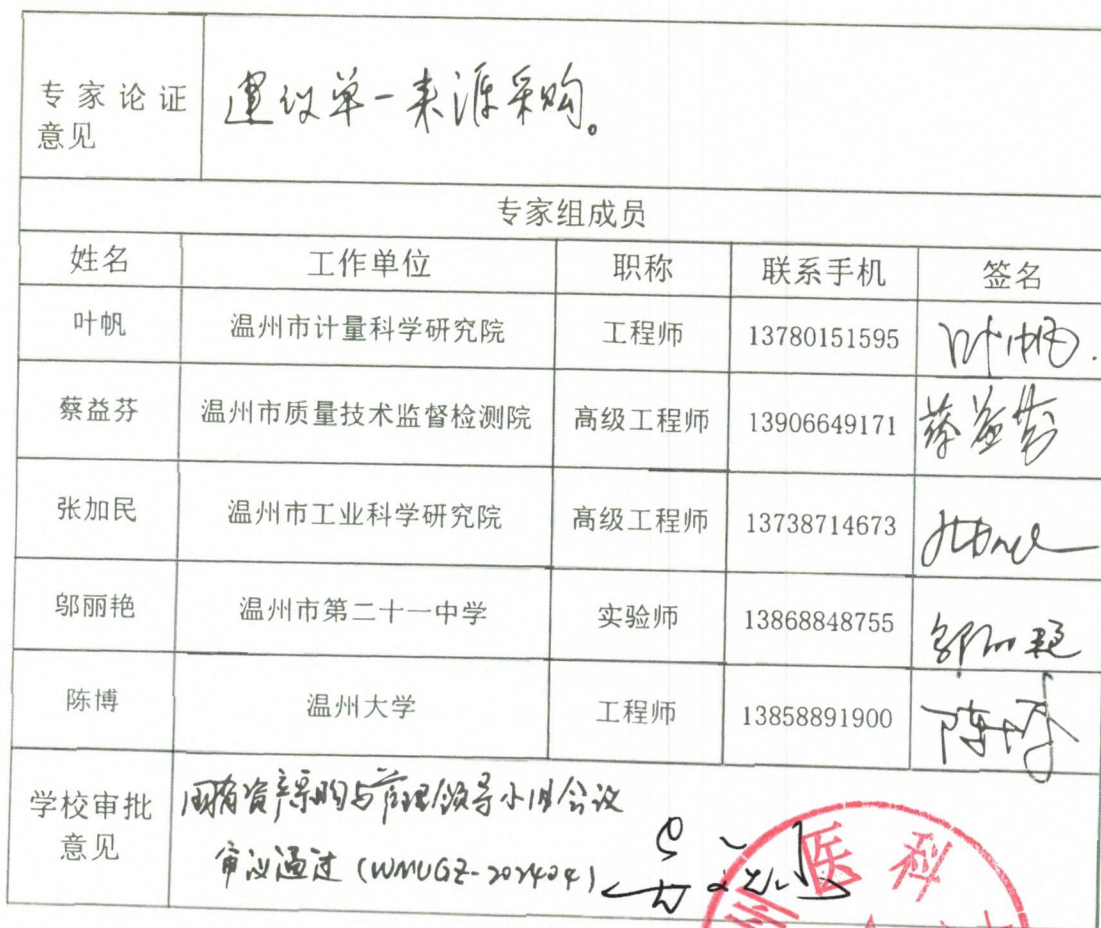 专家论证 建议单一来源采购。
意见
专家组成员
姓名 工作单位 职称 联系手机 签名
叶帆 温州市计量科学研究院 工程师 13780151595 叶帆.
蔡益芬 温州市质量技术监督检测院 高级工程师 13906649171 蔡益芬
张加民 温州市工业科学研究院 高级工程师 13738714673
邬丽艳 温州市第二十一中学 实验师 13868848755 邬丽艳
陈博 温州大学 工程师 13858891900 陈博
学校审批 国有资产采购与管理领导小组会议
意见 审议通过(WMUGZ-202404)
州医科